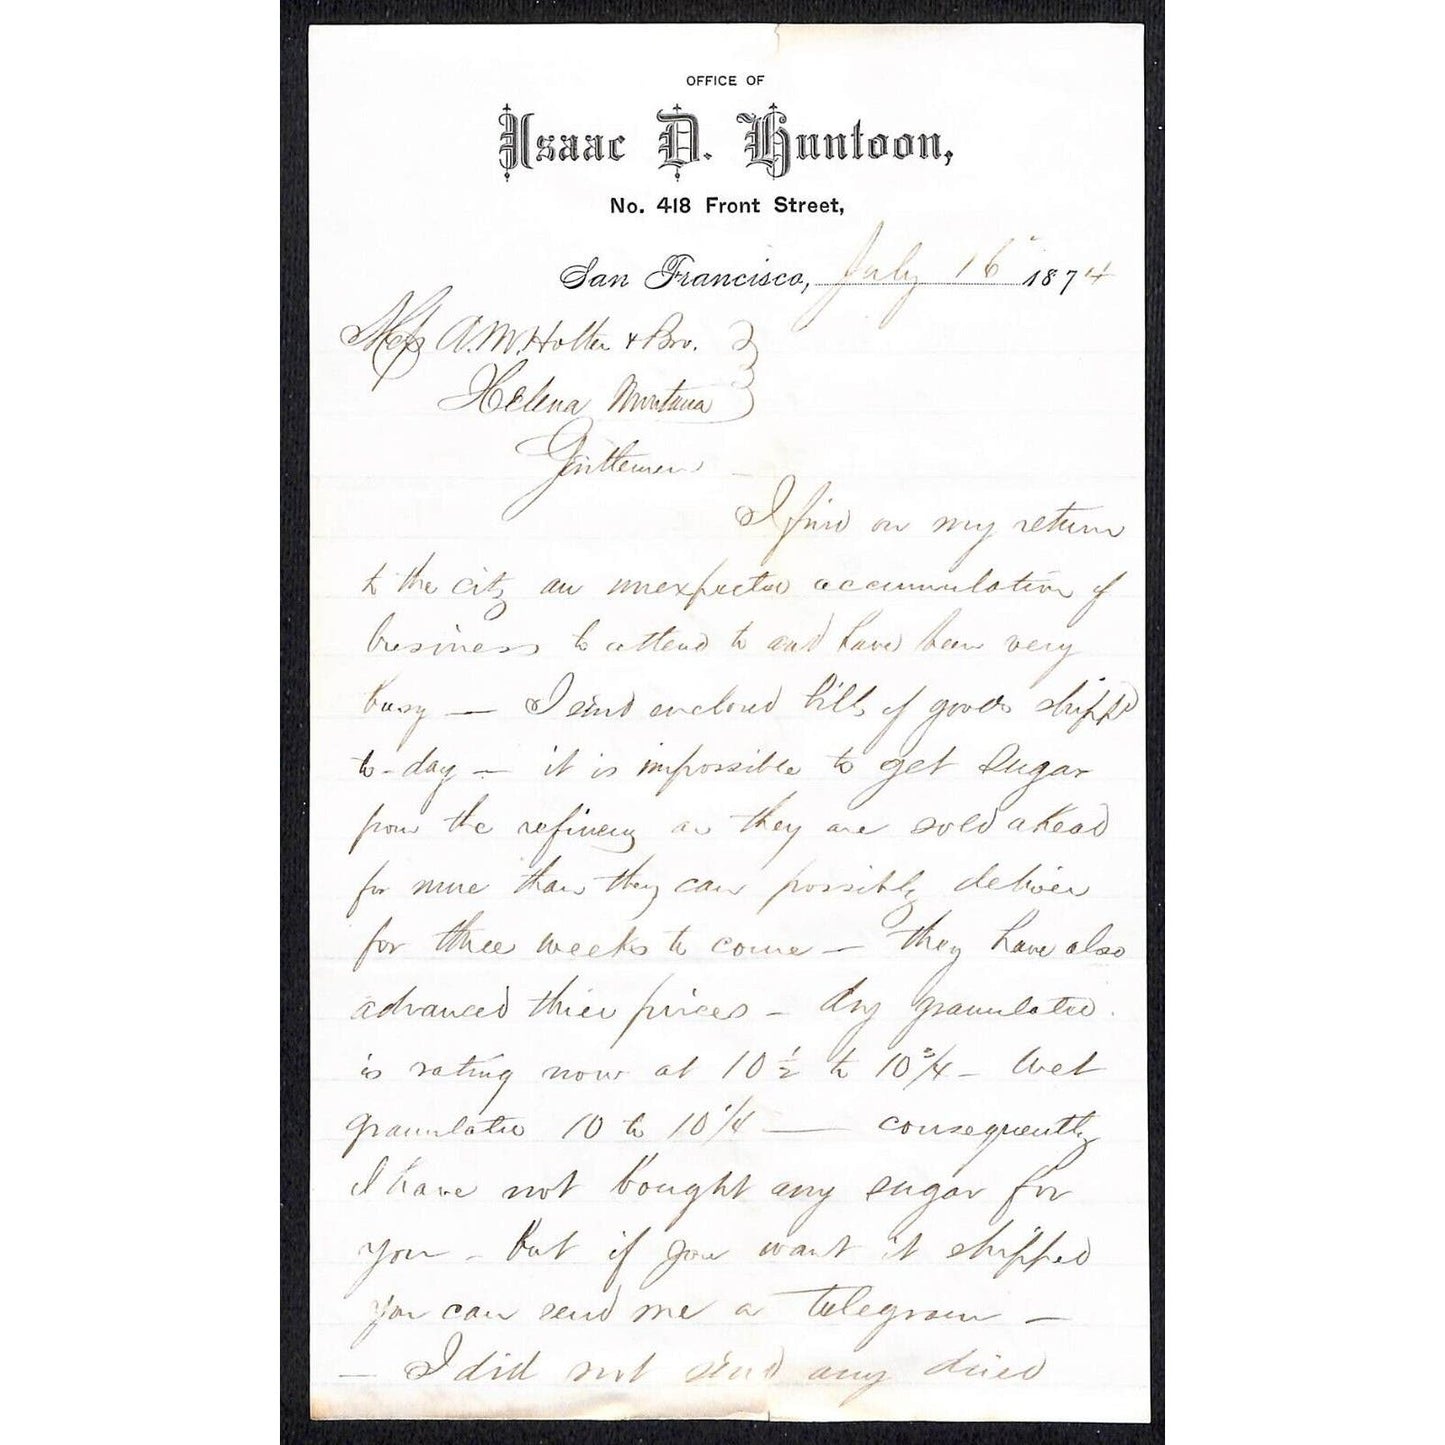 OFFICE OF
Isaac D. Huntoon,
No. 418 Front Street,
San Francisco, July 16" 1874
Mess A. M. Holter & Bro.
Helena Montana
Gentlemen
I find on my return
to the city an unexpected accumulation of
business to attend to and have been very
busy — I send enclosed bills of goods shippd
to-day — it is impossible to get sugar
from the refinery as they are sold ahead
for more than they can possibly deliver
for three weeks to come — they have also
advanced thier prices — dry granulated
is rating now at 10 1/2 to 10 3/4 — Wet
granulated 10 to 10 1/4 — consequently
I have not bought any sugar for
you — but if you want it shipped
you can send me a telegram —
— I did not send any dried